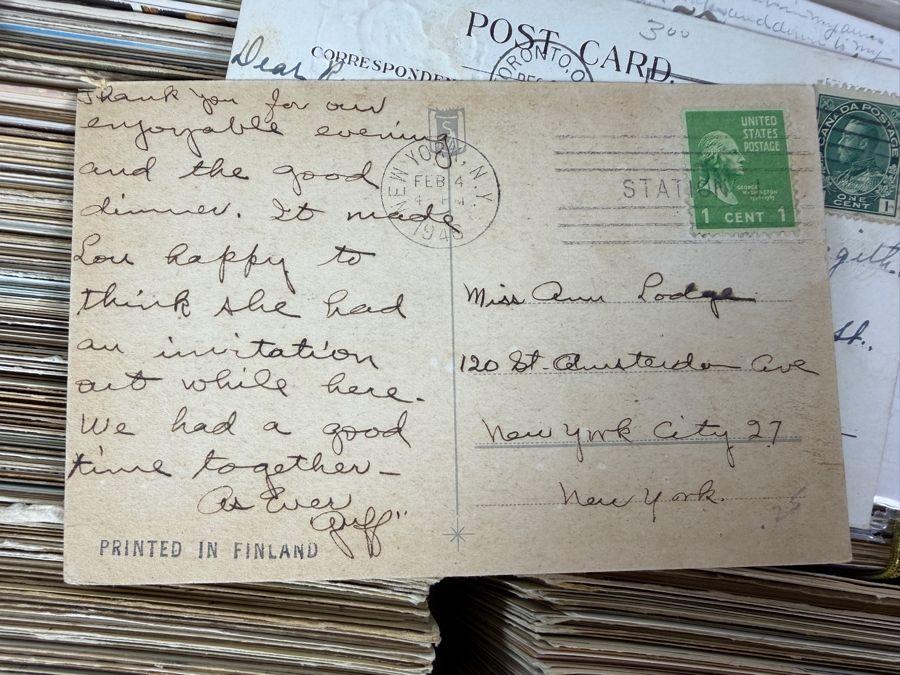 POST CARD.
300
CORRESPONDEN
Dear
TORONTO, O
CANADA POSTAGE
ONE CENT 1
Thank you for our
enjoyable evening
and the good
dinner. It made
Lou happy to
think she had
an invitation
out while here.
We had a good
time together—
As Ever
PRINTED IN FINLAND
NEW YORK, N.Y.
FEB 4
194
STATI
UNITED
STATES
POSTAGE
GEORGE
WASHINGTON
1 CENT 1
Miss Ann Lodge
120 St. Amsterdam Ave
New York City 27
New York.
.25
st.,